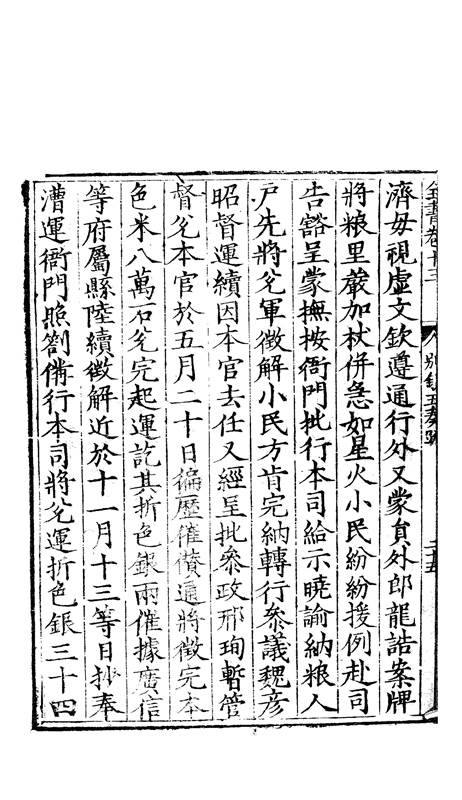 全書卷十三 別錄五奏疏 二十五
濟毋視虛文欽遵通行外又蒙員外郎龍誥案牌
將粮里嚴加杖併急如星火小民紛紛援例赴司
告豁呈蒙撫按衙門批行本司給示曉諭納粮人
戶先將兌軍徵解小民方肯完納轉行參議魏彦
昭督運續因本官去任又經呈批參政邢珣暫管
督兌本官於五月二十日徧歷催儹通將徵完本
色米八萬石兌完起運訖其折色銀兩催據廣信
等府屬縣陸續徵解近於十一月十三等日抄奉
漕運衙門照劄備行本司將兌運折色銀三十四